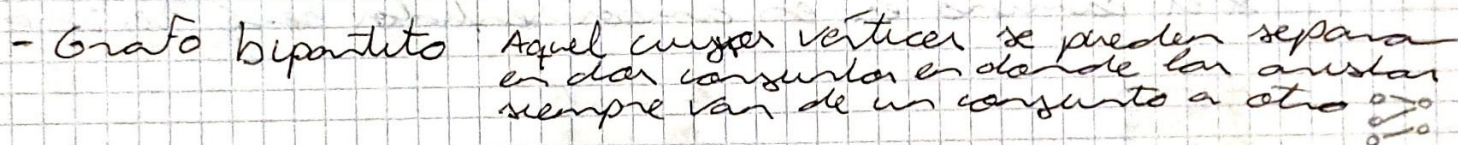 - Grafo bipartito Aquel cuyos vértices se pueden separar
en dos conjuntos en donde las aristas
siempre van de un conjunto a otro